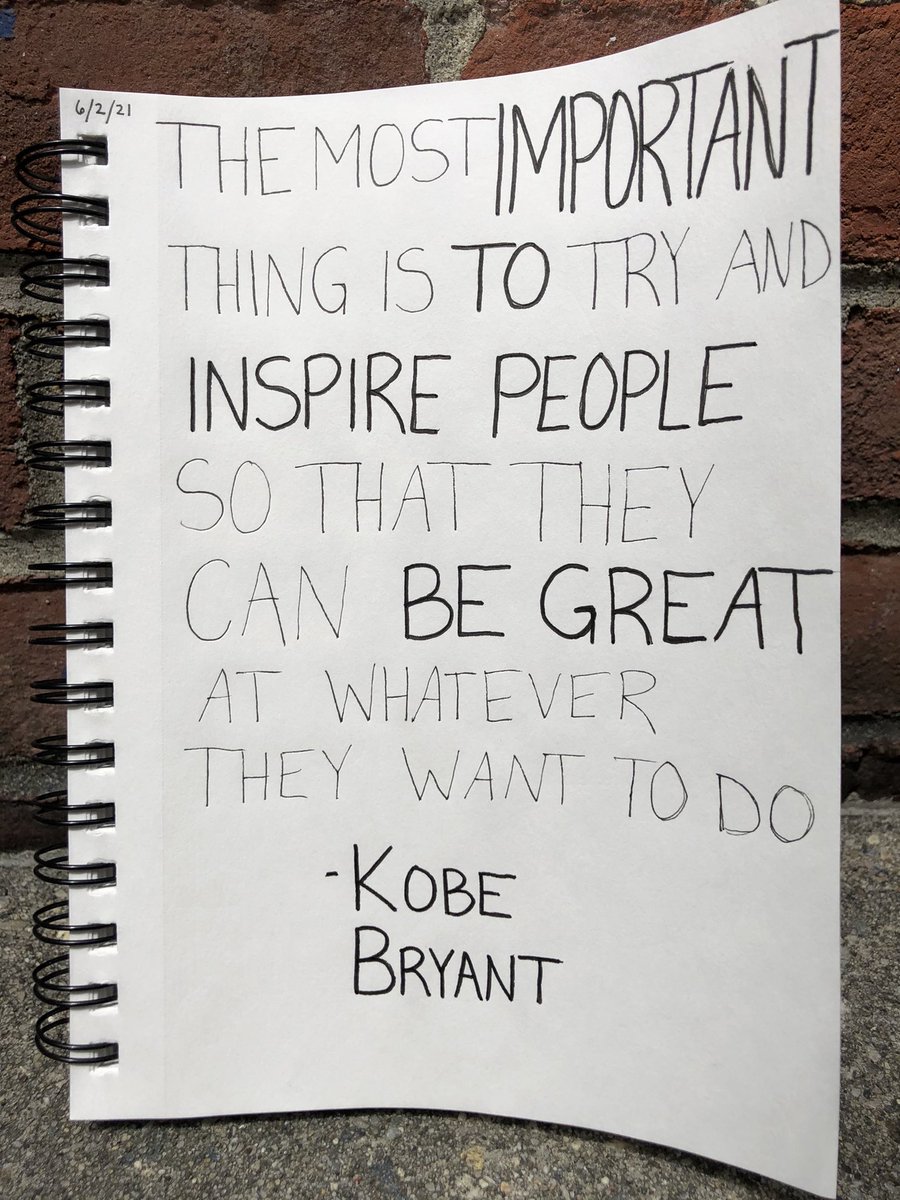 6/2/21
THE MOST IMPORTANT
THING IS TO TRY AND
INSPIRE PEOPLE
SO THAT THEY
CAN BE GREAT
AT WHATEVER
THEY WANT TO DO
-KOBE
BRYANT